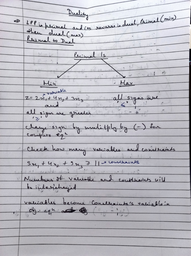 Duality
→ LPP is primal and its reverse is dual, primal (min)
then dual (max)
Primal to Dual
Primal is
Min Max
variable
Z = 2x₁ + 4x₂ + 3x₃ all signs are
and
all sign are greater
change sign by multiply by (-) for
Check how many variables and constraints
3x₁ + 4x₂ + 5x₃ ≥ 11 → constraints
Number of variables and constraints will
be interchanged
variables become constraints & variable in